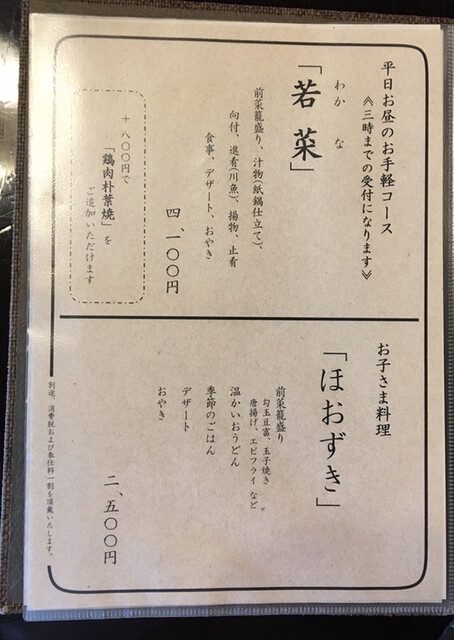 平日お昼のお手軽コース
《三時までの受付になります》
わかな
「若菜」
前菜籠盛り、汁物(紙鍋仕立て)、
向付、進肴(川魚)、揚物、止肴
食事、デザート、おやき
四、一〇〇円
+八〇〇円で
「鶏肉朴葉焼」を
ご追加いただけます
お子さま料理
「ほおずき」
前菜籠盛り
勾玉豆富、玉子焼き
唐揚げ、エビフライ など
温かいおうどん
季節のごはん
デザート
おやき
二、五〇〇円
別途、消費税および奉仕料一割を頂戴いたします。